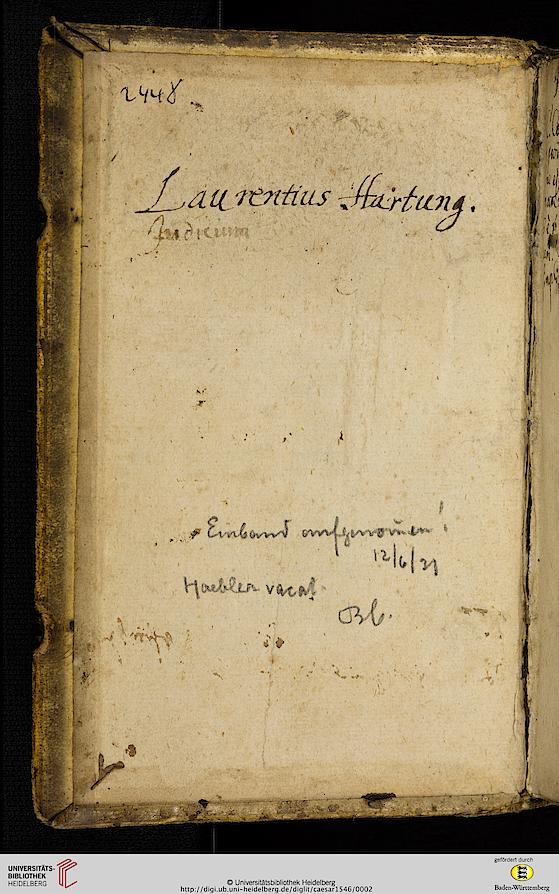 2448
Laurentius Hartung.
Judicum
Einband aufgenom̄en!
12/6/21
Haebler vacat.
Bl.
UNIVERSITÄTS-
BIBLIOTHEK
HEIDELBERG
© Universitätsbibliothek Heidelberg
http://digi.ub.uni-heidelberg.de/diglit/caesar1546/0002
gefördert durch
Baden-Württemberg